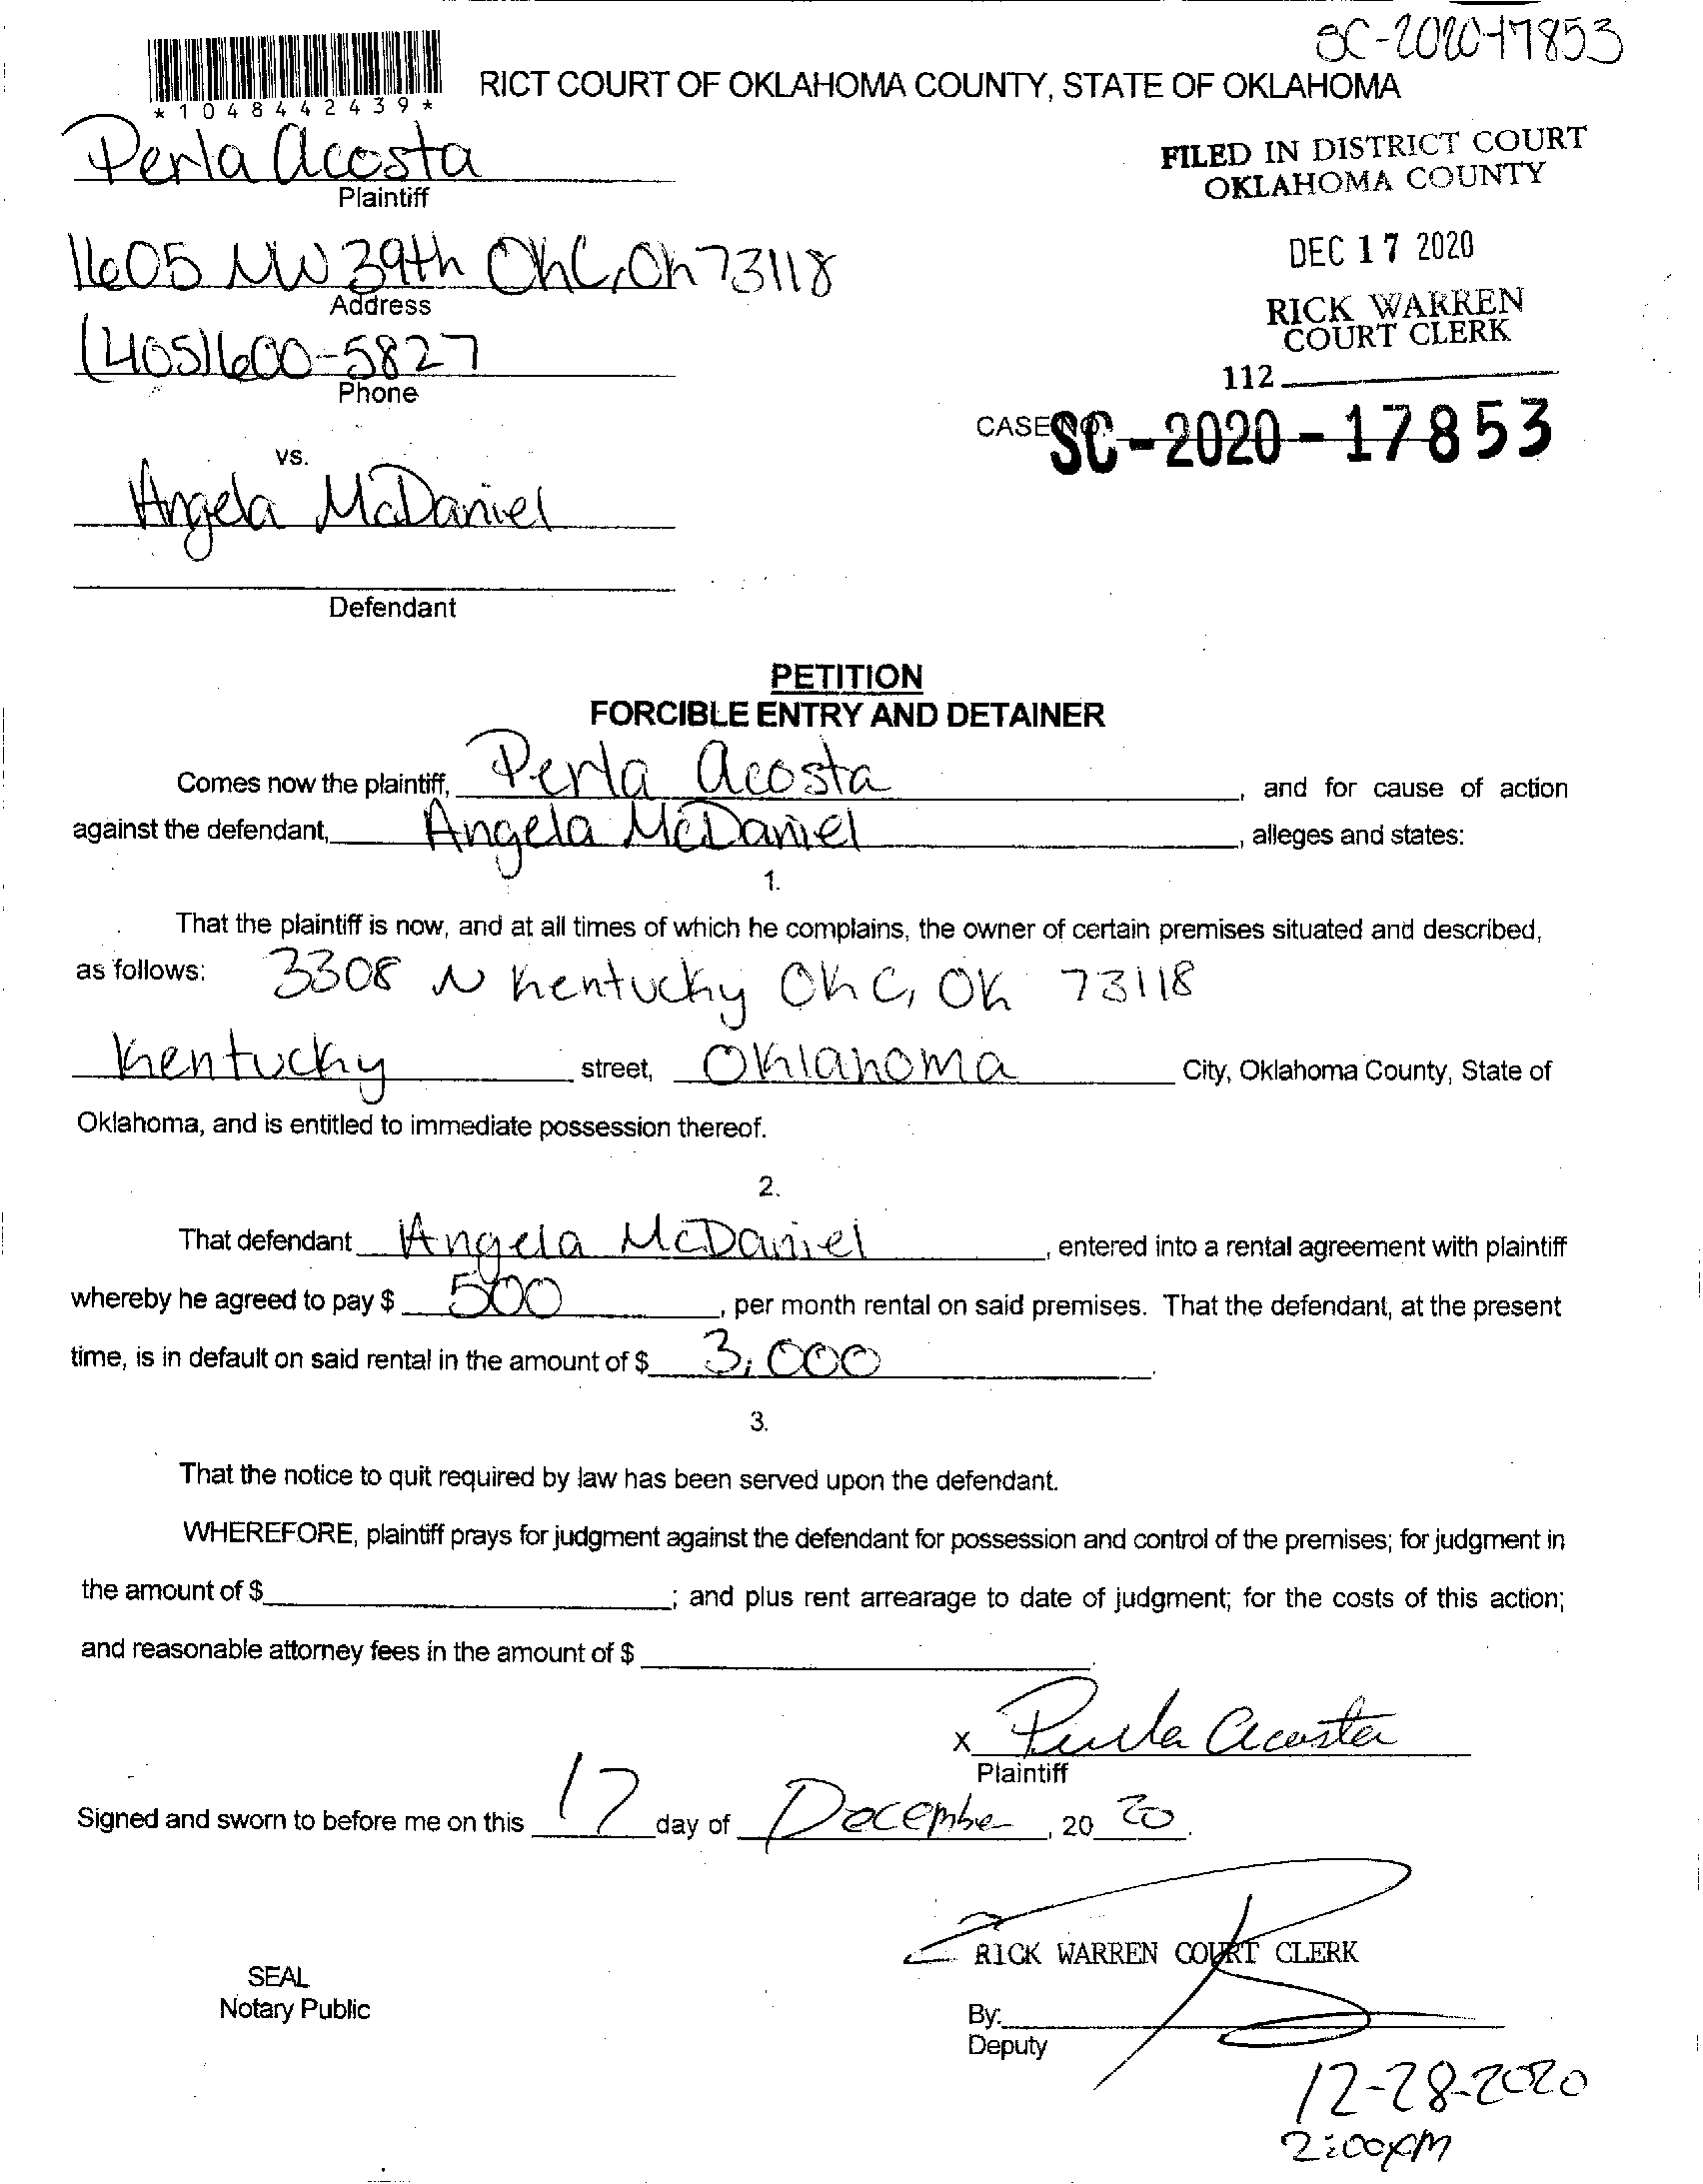 SC-2020-17853
*1048442439*
RICT COURT OF OKLAHOMA COUNTY, STATE OF OKLAHOMA
Perla Acosta
Plaintiff
FILED IN DISTRICT COURT
OKLAHOMA COUNTY
1605 NW 39th OKC, OK 73118
Address
DEC 17 2020
(405)600-5827
Phone
RICK WARREN
COURT CLERK
112
CASE NO. SC-2020-17853
vs.
Angela McDaniel
Defendant
PETITION
FORCIBLE ENTRY AND DETAINER
Comes now the plaintiff, Perla Acosta, and for cause of action
against the defendant, Angela McDaniel, alleges and states:
1.
That the plaintiff is now, and at all times of which he complains, the owner of certain premises situated and described,
as follows: 3308 N Kentucky OKC, OK 73118
Kentucky street, Oklahoma City, Oklahoma County, State of
Oklahoma, and is entitled to immediate possession thereof.
2.
That defendant Angela McDaniel, entered into a rental agreement with plaintiff
whereby he agreed to pay $ 500, per month rental on said premises. That the defendant, at the present
time, is in default on said rental in the amount of $ 3,000.
3.
That the notice to quit required by law has been served upon the defendant.
WHEREFORE, plaintiff prays for judgment against the defendant for possession and control of the premises; for judgment in
the amount of $ ; and plus rent arrearage to date of judgment; for the costs of this action;
and reasonable attorney fees in the amount of $ .
x Perla Acosta
Plaintiff
Signed and sworn to before me on this 17 day of December, 20 20.
RICK WARREN COURT CLERK
SEAL
Notary Public
By:
Deputy
12-28-2020
2:00PM